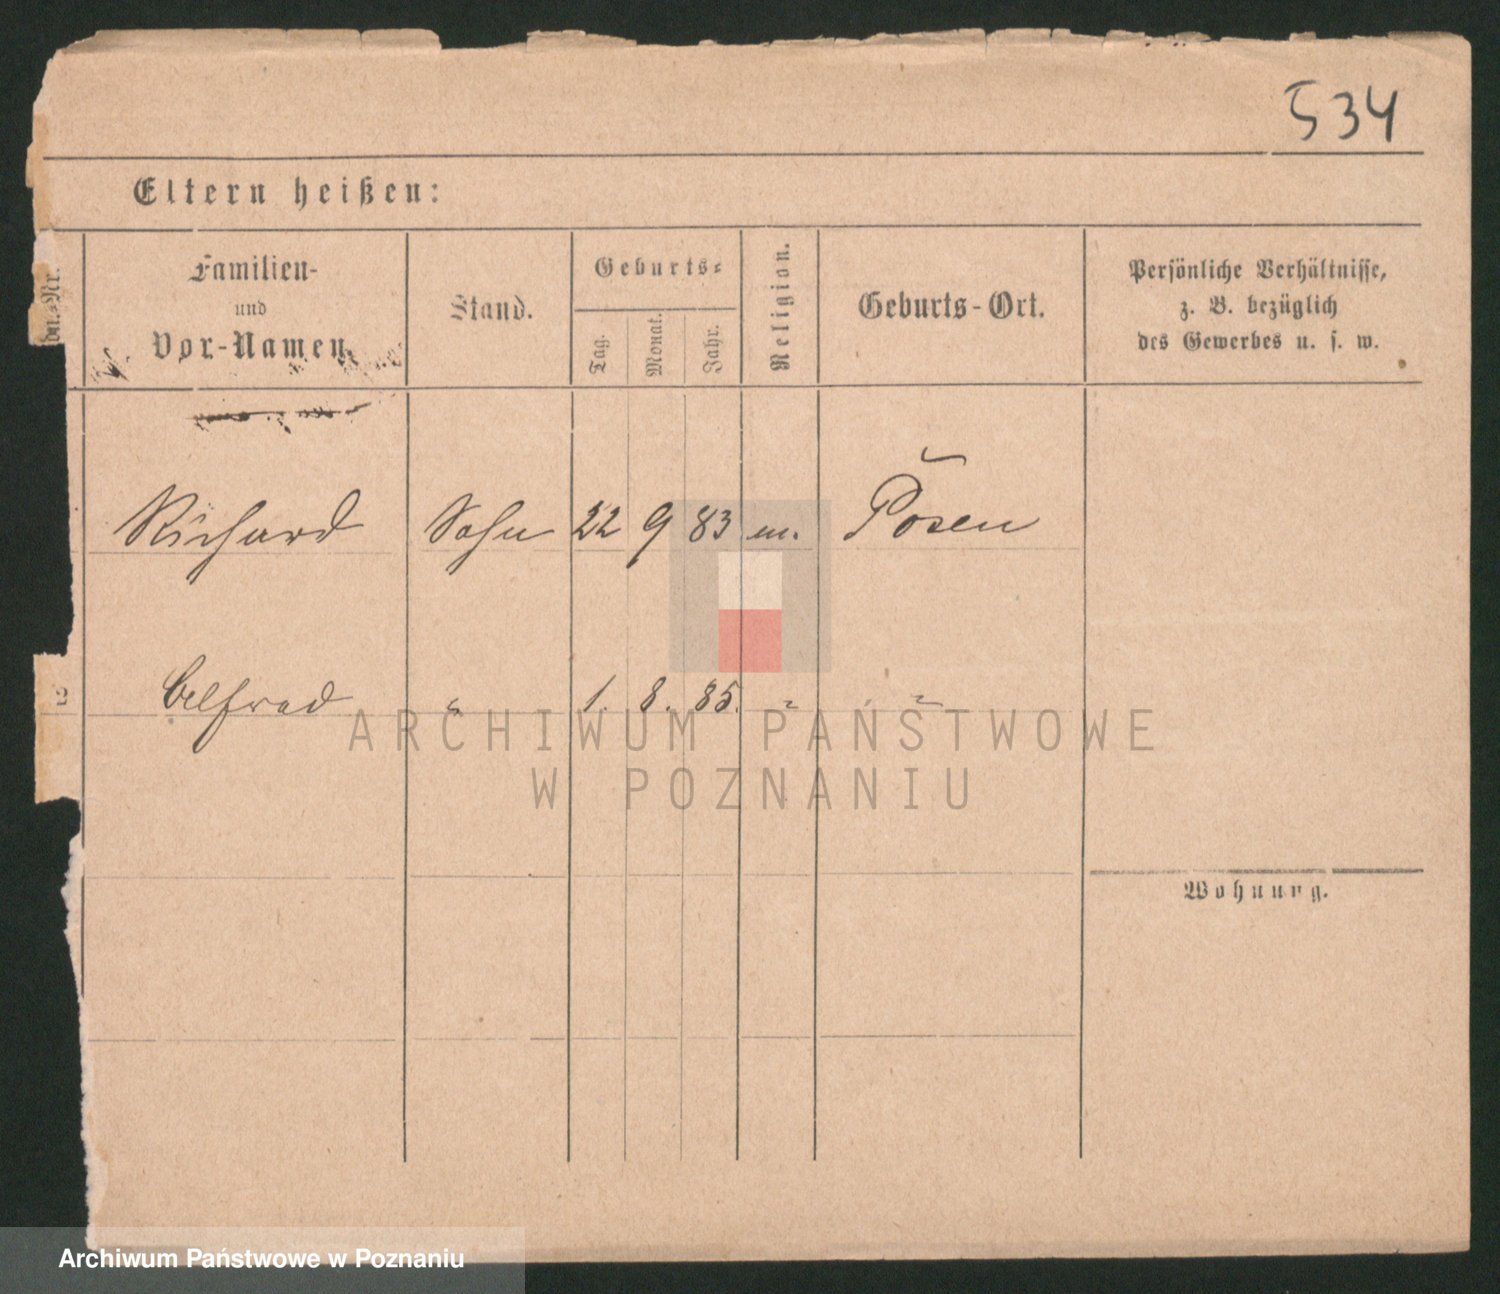 534
Eltern heißen:
Familien- und Vor-Namen.
Stand.
Geburts-
Tag. Monat. Jahr.
Religion.
Geburts-Ort.
Persönliche Verhältnisse,
z. B. bezüglich
des Gewerbes u. s. w.
Richard Sohn 22 9 83 m. Posen
2 Alfred " 1. 8. 85. " "
Wohnung.
ARCHIWUM PAŃSTWOWE
W POZNANIU
Archiwum Państwowe w Poznaniu